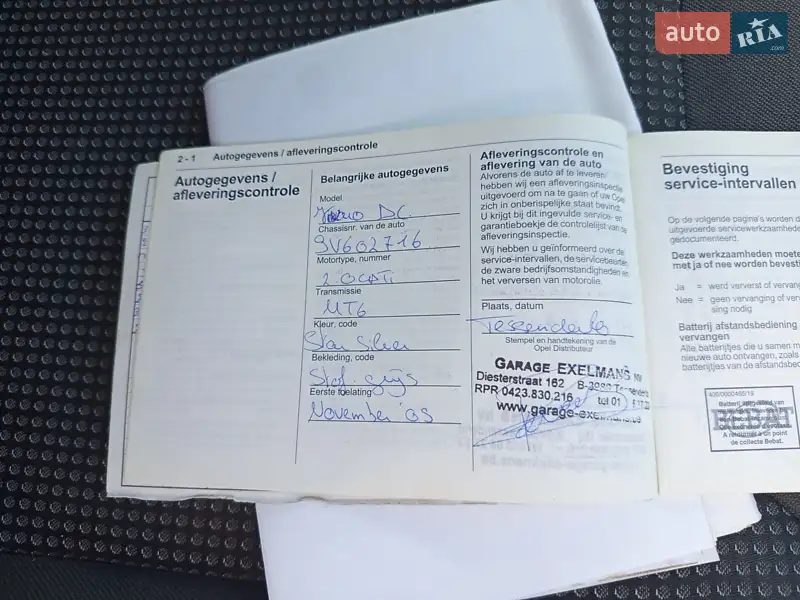 auto RIA .com
2 - 1 Autogegevens / afleveringscontrole
Autogegevens /
afleveringscontrole
Belangrijke autogegevens
Model
DC
Chassisnr. van de auto
5V602716
Motortype, nummer
2.0CDTi
Transmissie
MT6
Kleur, code
Star Silver
Bekleding, code
Stof grijs
Eerste toelating
November '05
Afleveringscontrole en
aflevering van de auto
Alvorens de auto af te leveren
hebben wij een afleveringsinspectie
uitgevoerd om na te gaan of uw Opel
zich in onberispelijke staat bevindt.
U krijgt bij dit ingevulde service- en
garantieboekje de controlelijst van de
afleveringsinspectie.
Wij hebben u geïnformeerd over de
service-intervallen, de servicebeurten,
de zware bedrijfsomstandigheden en
het verversen van motorolie.
Plaats, datum
Tessenderlo
Stempel en handtekening van de
Opel Distributeur
GARAGE EXELMANS NV
Diesterstraat 162 B-3980 Tessenderlo
RPR 0423.830.216 tel 01
www.garage-exelmans.be
Bevestiging
service-intervallen
Op de volgende pagina's worden d
uitgevoerde servicewerkzaamhede
gedocumenteerd.
Deze werkzaamheden moete
met ja of nee worden bevesti
Ja = werd ververst of vervan
Nee = geen vervanging of ver
sing nodig
Batterij afstandsbediening
vervangen
Alle batterijtjes die u samen m
nieuwe auto ontvangen, zoals
batterijtjes van de afstandsbed
400/0000465/19
BEBAT
A retourner à dit point
de collecte Bebat.